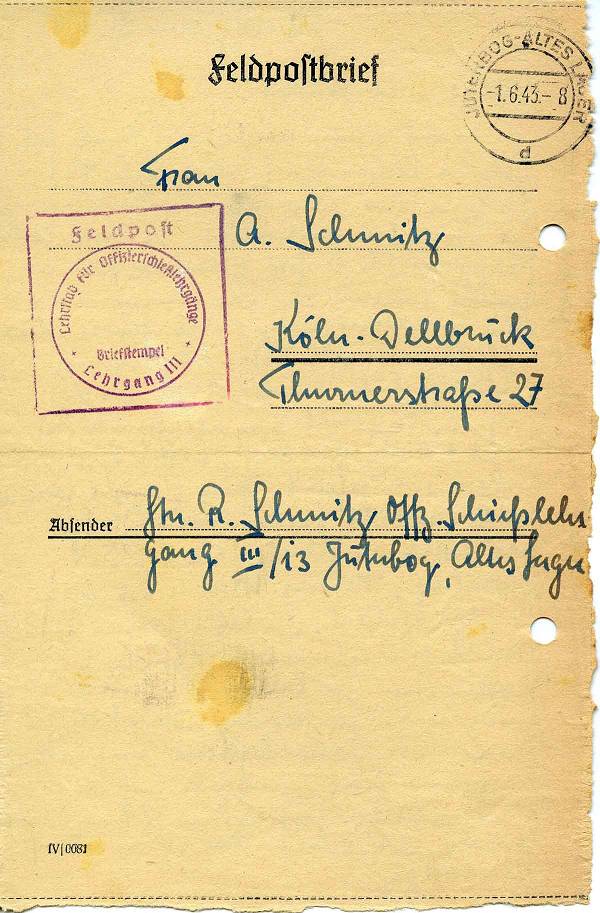 Feldpostbrief
JÜTERBOG-ALTES LAGER
-1.6.43.- 8
d
Frau
A. Schmitz
Köln-Dellbrück
Thurnerstraße 27
Feldpost
Lehrstab für Offizierschießlehrgänge
Briefstempel
* Lehrgang III *
Absender
R. Schmitz Offz. Schießlehr
gang III/13 Jüterbog, Altes Lager
IV/0081